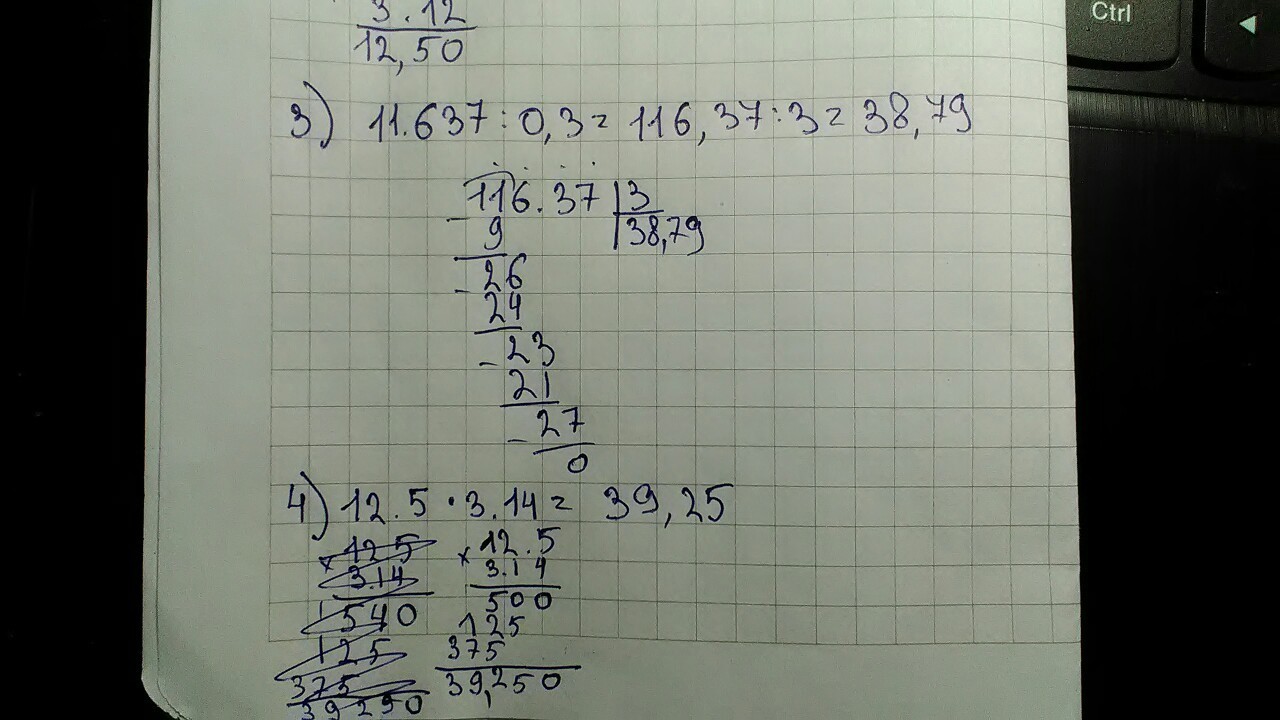 Ctrl
3.12
12,50
3) 11.637 : 0,3 = 116,37 : 3 = 38,79
116.37 | 3
- 9 | 38,79
26
- 24
- 23
21
- 27
0
4) 12.5 · 3.14 = 39,25
125 × 12.5
× 3.14 3.14
1540 500
125 125
375 375
39250 39,250